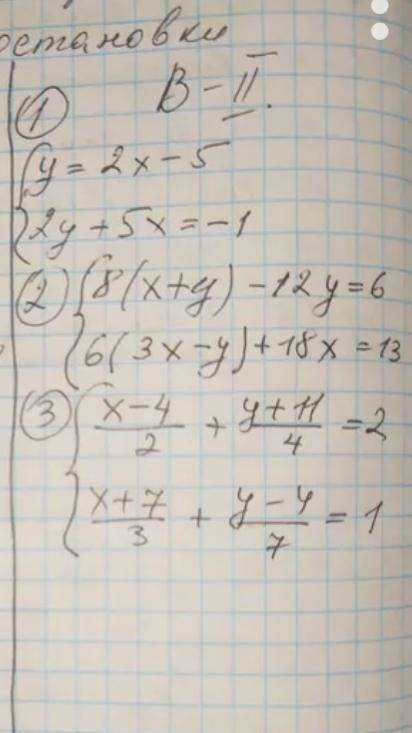 остановки
В-II.
① { y = 2x - 5
2y + 5x = -1
② { 8(x+y) - 12y = 6
6(3x-y) + 18x = 13
③ { (x-4)/2 + (y+11)/4 = 2
(x+7)/3 + (y-4)/7 = 1